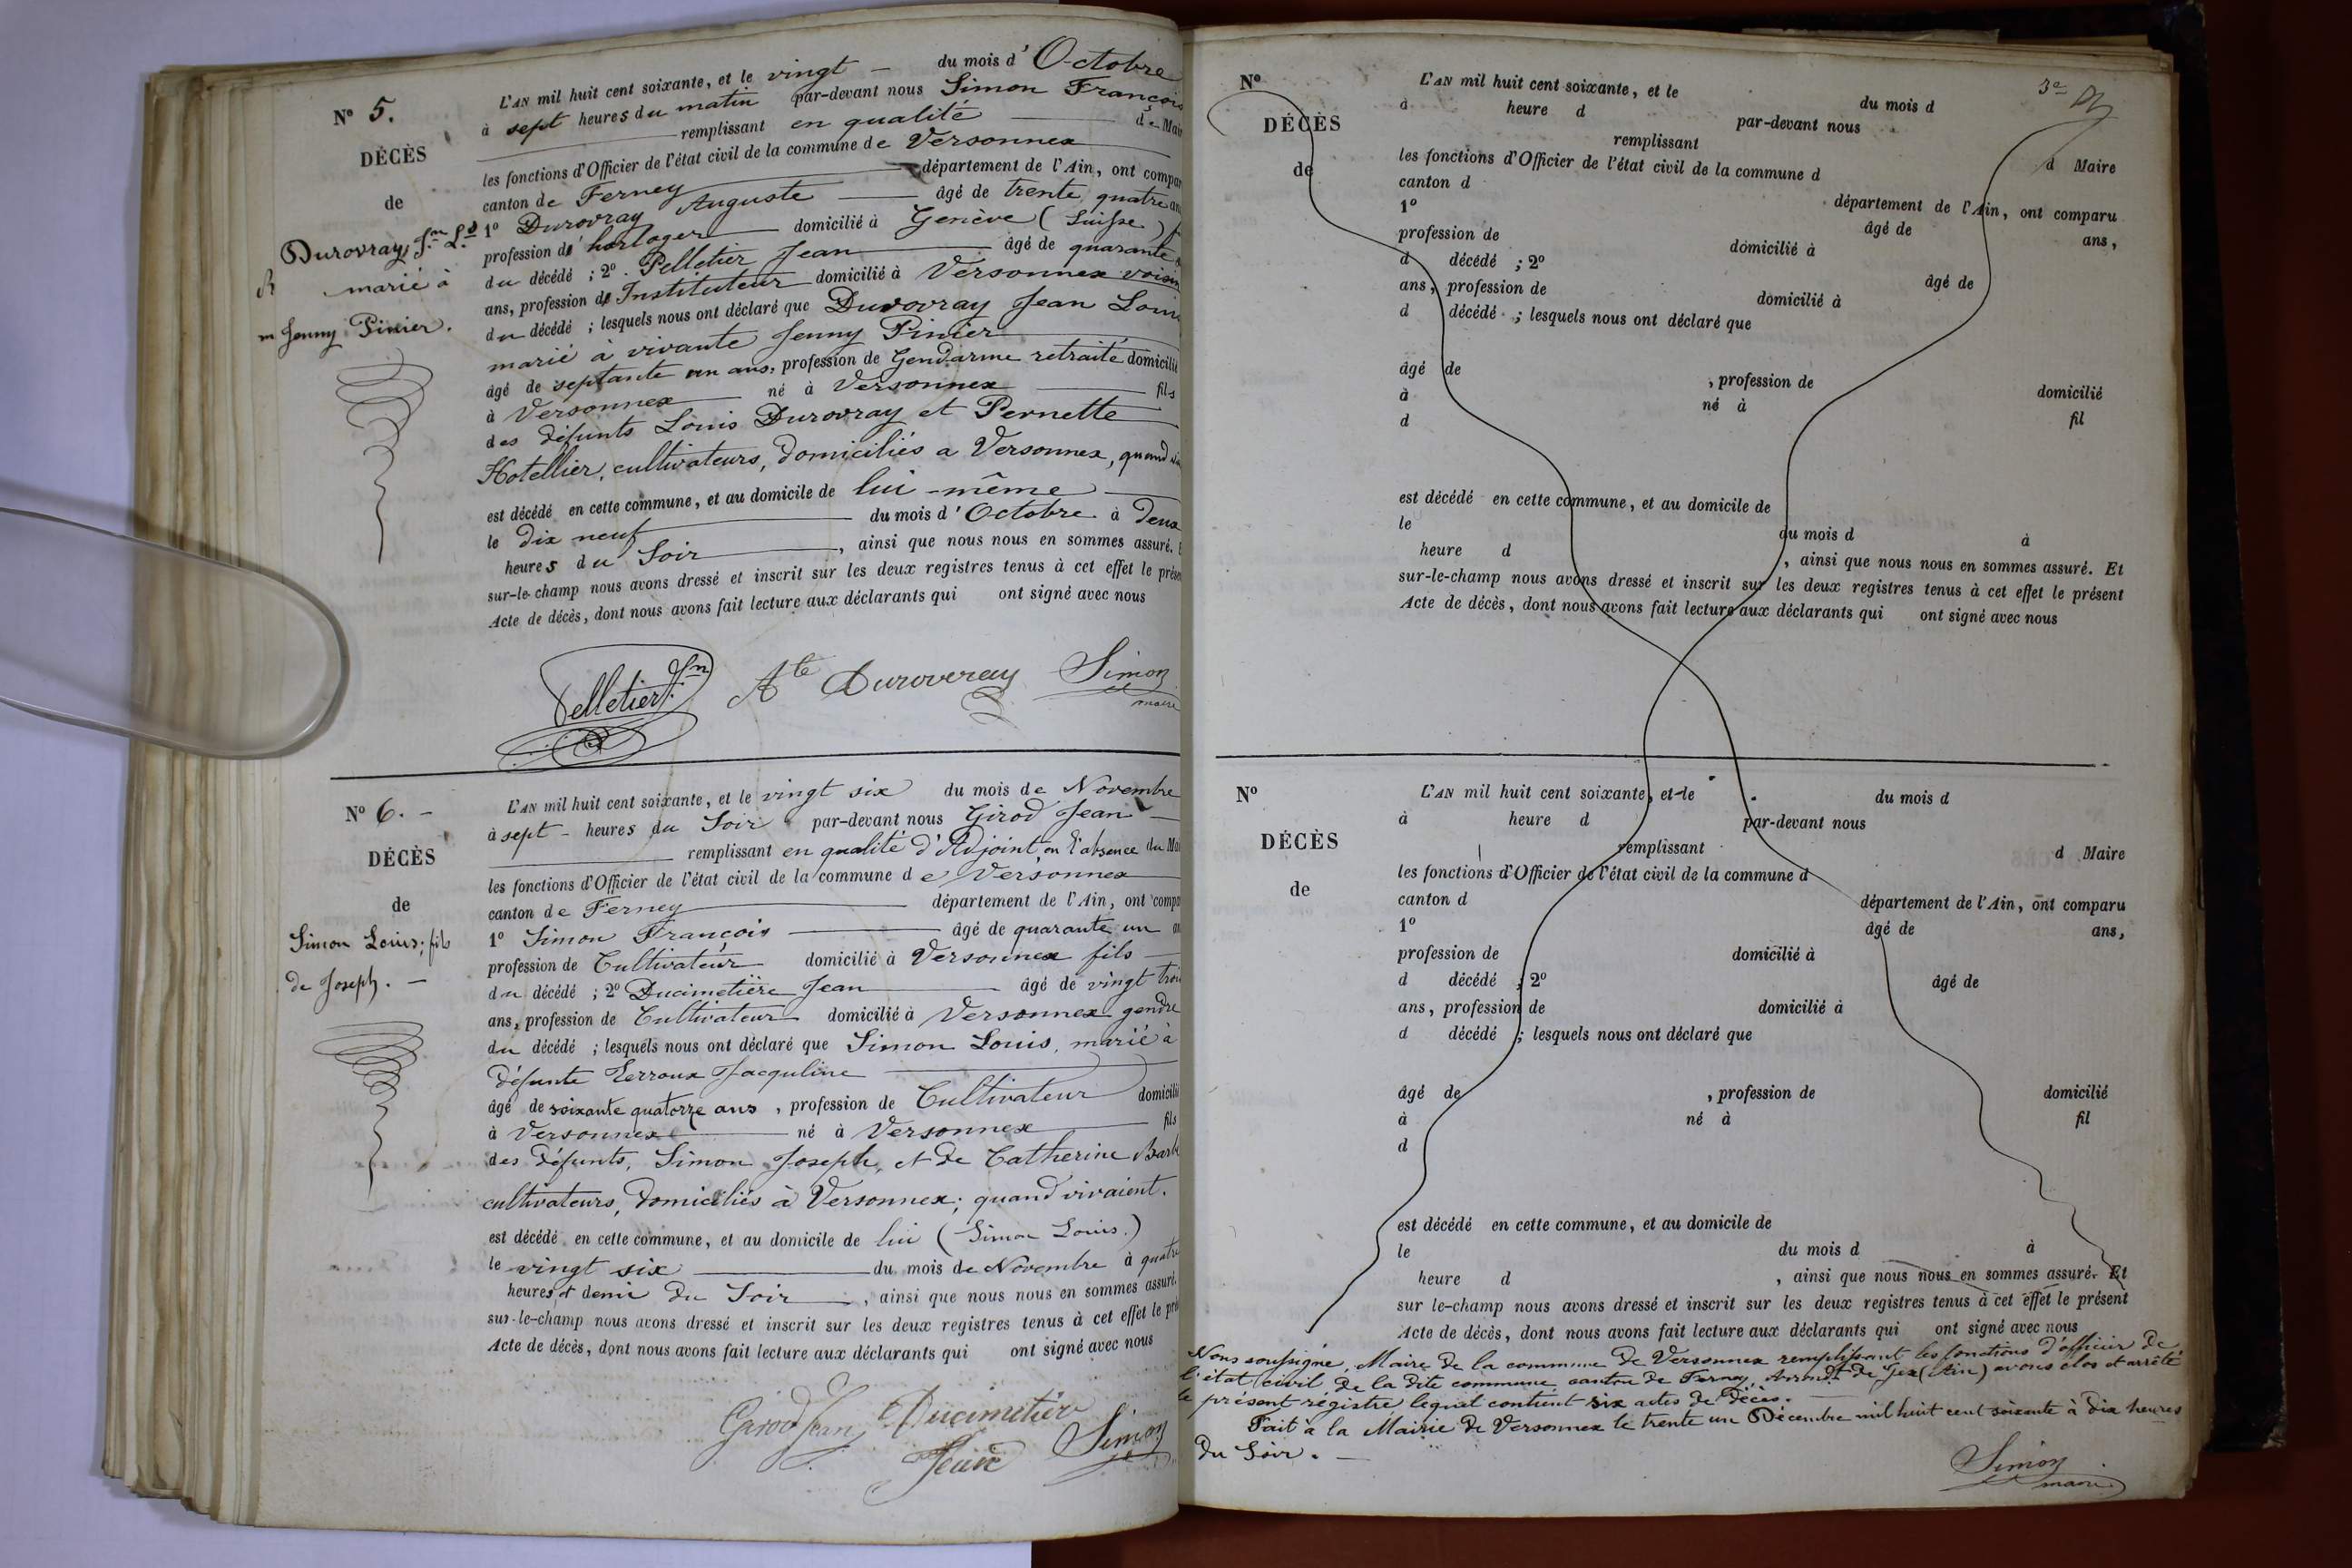 N° 5.
DÉCÈS
de
Durovray, Jn Ls
marié à
Jenny Pinier.
L'AN mil huit cent soixante, et le vingt — du mois d'Octobre
à sept heures du matin par-devant nous Simon François
remplissant en qualité de Mai
les fonctions d'Officier de l'état civil de la commune de Versonnex
canton de Ferney département de l'Ain, ont compar
1° Durovray Auguste âgé de trente quatre an
profession d' horloger domicilié à Genève (Suisse)
du décédé ; 2° Pelletier Jean âgé de quarante
ans, profession d' Instituteur domicilié à Versonnex voisin
du décédé ; lesquels nous ont déclaré que Durovray Jean Louis
marié à vivante Jenny Pinier
âgé de septante un ans, profession de Gendarme retraité domicilié
à Versonnex né à Versonnex fils
des défunts Louis Durovray et Pernette
Hotellier, cultivateurs, domiciliés a Versonnex, quand
est décédé en cette commune, et au domicile de lui-même
le dix neuf du mois d'Octobre à deux
heures du Soir, ainsi que nous nous en sommes assuré.
sur-le-champ nous avons dressé et inscrit sur les deux registres tenus à cet effet le prése
Acte de décès, dont nous avons fait lecture aux déclarants qui ont signé avec nous
Pelletier Jn Ate Duroveray Simon
maire
N° 6. -
DÉCÈS
de
Simon Louis, fils
de Joseph. —
L'AN mil huit cent soixante, et le vingt six du mois de Novembre
à sept - heures du Soir par-devant nous Girod Jean —
remplissant en qualité d'Adjoint en l'absence du Mai
les fonctions d'Officier de l'état civil de la commune de Versonnex
canton de Ferney département de l'Ain, ont compa
1° Simon François âgé de quarante un an
profession de Cultivateur domicilié à Versonnex fils
du décédé ; 2° Ducimetière Jean âgé de vingt trois
ans, profession de Cultivateur domicilié à Versonnex gendre
du décédé ; lesquels nous ont déclaré que Simon Louis, marié à
défunte Jacquline
âgé de soixante quatorze ans, profession de Cultivateur domicilié
à Versonnex né à Versonnex fils
des défunts, Simon Joseph, et de Catherine
cultivateurs, domiciliés à Versonnex; quand vivaient.
est décédé en cette commune, et au domicile de lui (Simon Louis.)
le vingt six du mois de Novembre à quatre
heures et demi du Soir, ainsi que nous nous en sommes assuré.
sur-le-champ nous avons dressé et inscrit sur les deux registres tenus à cet effet le pré
Acte de décès, dont nous avons fait lecture aux déclarants qui ont signé avec nous
Girod Jean Ducimetière Simon
Jean
3e
N°
DÉCÈS
de
L'AN mil huit cent soixante, et le du mois d
à heure d par-devant nous
remplissant d Maire
les fonctions d'Officier de l'état civil de la commune d
canton d département de l'Ain, ont comparu
1° âgé de ans,
profession de domicilié à
d décédé ; 2° âgé de
ans, profession de domicilié à
d décédé ; lesquels nous ont déclaré que
âgé de , profession de domicilié
à né à fil
d
est décédé en cette commune, et au domicile de
le du mois d à
heure d , ainsi que nous nous en sommes assuré. Et
sur-le-champ nous avons dressé et inscrit sur les deux registres tenus à cet effet le présent
Acte de décès, dont nous avons fait lecture aux déclarants qui ont signé avec nous
N°
DÉCÈS
de
L'AN mil huit cent soixante, et le du mois d
à heure d par-devant nous
remplissant d Maire
les fonctions d'Officier de l'état civil de la commune d
canton d département de l'Ain, ont comparu
1° âgé de ans,
profession de domicilié à
d décédé ; 2° âgé de
ans, profession de domicilié à
d décédé ; lesquels nous ont déclaré que
âgé de , profession de domicilié
à né à fil
d
est décédé en cette commune, et au domicile de
le du mois d à
heure d , ainsi que nous nous en sommes assuré. Et
sur le-champ nous avons dressé et inscrit sur les deux registres tenus à cet effet le présent
Acte de décès, dont nous avons fait lecture aux déclarants qui ont signé avec nous
Nous soussigné, Maire de la commune de Versonnex remplissant les fonctions d'officier de
l'état civil de la dite commune canton de Ferney, Arrondt de Gex (Ain) avons clos et arrêté
le présent régistre lequel contient six actes de décès.
Fait à la Mairie de Versonnex le trente un Décembre mil huit cent soixante à dix heures
du Soir. —
Simon
maire